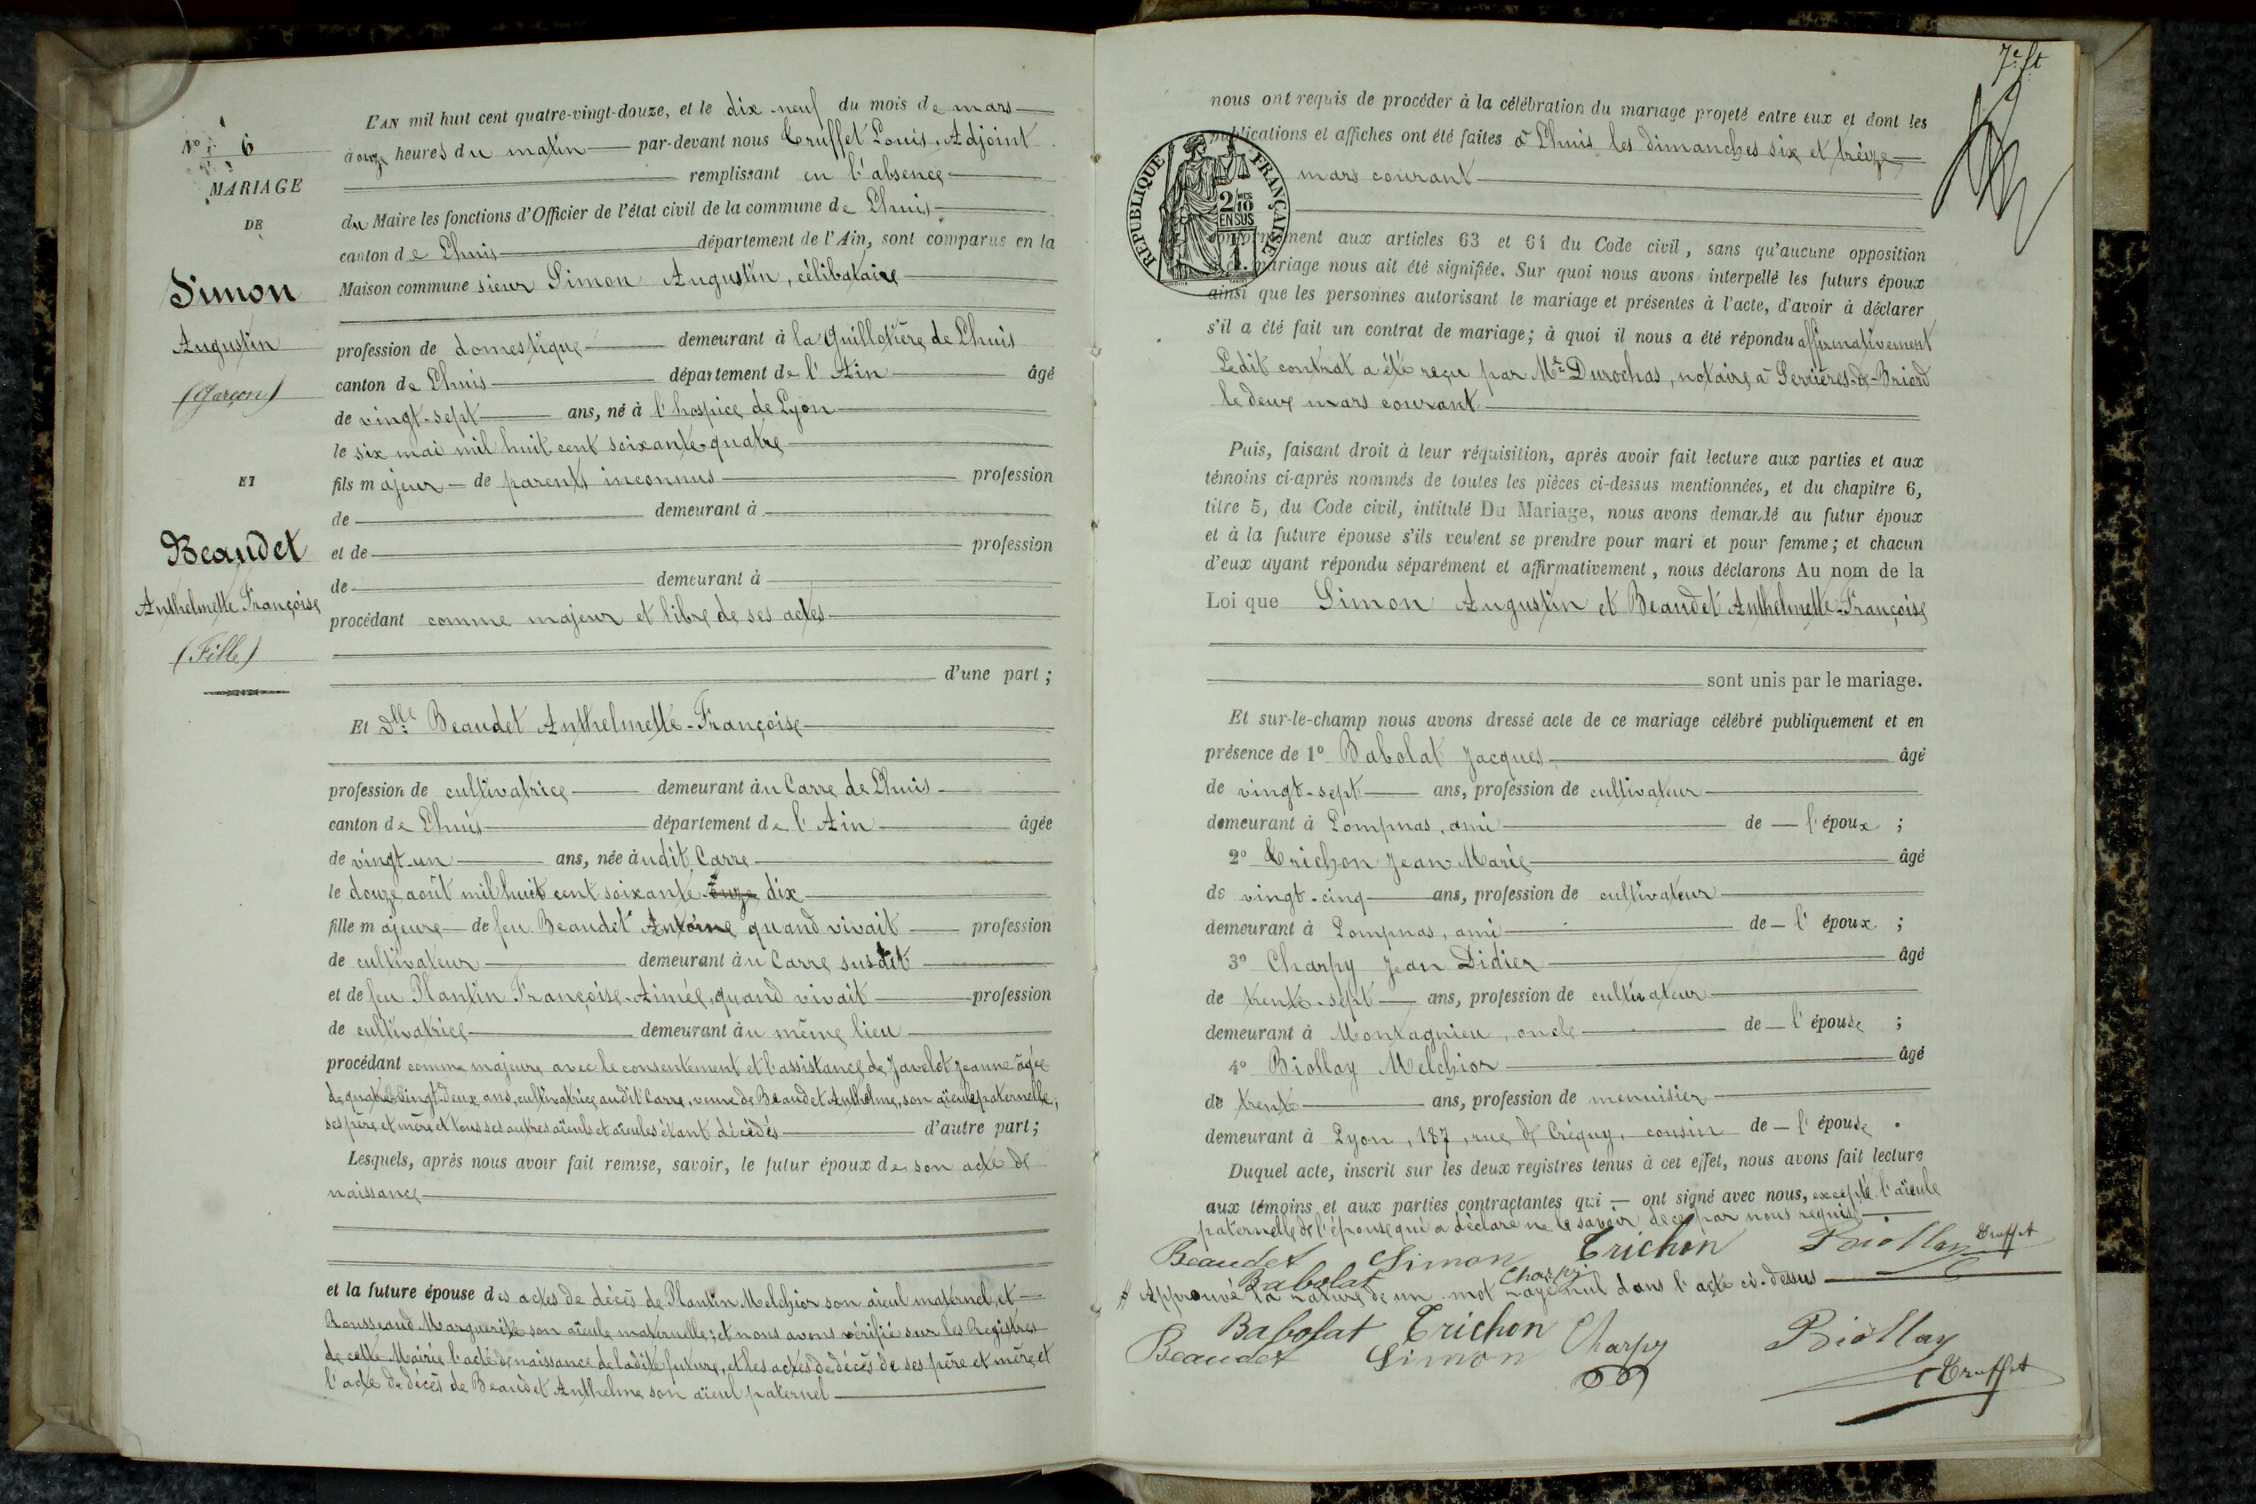 N° 6
MARIAGE
DE
Simon
Augustin
(Garçon)
ET
Beaudet
Anthelmette Françoise
(Fille)
L'AN mil huit cent quatre-vingt-douze, et le dix-neuf du mois de mars
à onze heures du matin par-devant nous Truffet Louis, Adjoint
remplissant en l'absence
du Maire les fonctions d'Officier de l'état civil de la commune de Lhuis
canton de Lhuis département de l'Ain, sont comparus en la
Maison commune sieur Simon Augustin, célibataire
profession de domestique demeurant à la Guillotière de Lhuis
canton de Lhuis département de l'Ain âgé
de vingt-sept ans, né à l'hospice de Lyon
le six mai mil huit cent soixante-quatre
fils majeur de parents inconnus profession
de demeurant à
et de profession
de demeurant à
procédant comme majeur et libre de ses actes
d'une part ;
Et Dlle Beaudet Anthelmette-Françoise
profession de cultivatrice demeurant au Carre de Lhuis
canton de Lhuis département de l'Ain âgée
de vingt-un ans, née audit Carre
le douze août mil huit cent soixante-onze dix
fille majeure de feu Beaudet Antoine quand vivait profession
de cultivateur demeurant au Carre susdit
et de feu Plantin Françoise-Aimée, quand vivait profession
de cultivatrice demeurant au même lieu
procédant comme majeure avec le consentement et l'assistance de Javelot Jeanne âgée
de quatre-vingt-deux ans, cultivatrice audit Carre, veuve de Beaudet Anthelme, son aïeule paternelle,
ses père et mère et tous ses autres aïeuls et aïeules étant décédés d'autre part ;
Lesquels, après nous avoir fait remise, savoir, le futur époux de son acte de
naissance
et la future épouse des actes de décès de Plantin Melchior son aïeul maternel, et
Rousseaud Marguerite son aïeule maternelle ; et nous avons vérifié sur les Registres
de cette Mairie l'acte de naissance de ladite future, et les actes de décès de ses père et mère et
l'acte de décès de Beaudet Anthelme son aïeul paternel
7e ft
nous ont requis de procéder à la célébration du mariage projeté entre eux et dont les
publications et affiches ont été faites à Lhuis les dimanches six et treize
mars courant
RÉPUBLIQUE FRANÇAISE
2/10 EN SUS
conformément aux articles 63 et 64 du Code civil, sans qu'aucune opposition
mariage nous ait été signifiée. Sur quoi nous avons interpellé les futurs époux
ainsi que les personnes autorisant le mariage et présentes à l'acte, d'avoir à déclarer
s'il a été fait un contrat de mariage ; à quoi il nous a été répondu affirmativement
Ledit contrat a été reçu par Me Durochas, notaire à Serrières-de-Briord
le deux mars courant
Puis, faisant droit à leur réquisition, après avoir fait lecture aux parties et aux
témoins ci-après nommés de toutes les pièces ci-dessus mentionnées, et du chapitre 6,
titre 5, du Code civil, intitulé Du Mariage, nous avons demandé au futur époux
et à la future épouse s'ils veulent se prendre pour mari et pour femme ; et chacun
d'eux ayant répondu séparément et affirmativement, nous déclarons Au nom de la
Loi que Simon Augustin et Beaudet Anthelmette-Françoise
sont unis par le mariage.
Et sur-le-champ nous avons dressé acte de ce mariage célébré publiquement et en
présence de 1° Babolat Jacques âgé
de vingt-sept ans, profession de cultivateur
demeurant à Lompnas, ami de l'époux ;
2° Trichon Jean Marie âgé
de vingt-cinq ans, profession de cultivateur
demeurant à Lompnas, ami de l'époux ;
3° Charpy Jean Didier âgé
de trente-sept ans, profession de cultivateur
demeurant à Montagnieu, oncle de l'épouse ;
4° Biollay Melchior âgé
de trente ans, profession de menuisier
demeurant à Lyon, 187, rue de Créquy, cousin de l'épouse.
Duquel acte, inscrit sur les deux registres tenus à cet effet, nous avons fait lecture
aux témoins et aux parties contractantes qui ont signé avec nous, excepté l'aïeule
paternelle de l'épouse qui a déclaré ne le savoir de ce par nous requise
Beaudet Simon Trichon Biollay Truffet
Babolat Charpy
Approuvé la rature de un mot rayé nul dans l'acte ci-dessus
Babolat Trichon Charpy Biollay
Beaudet Simon Truffet